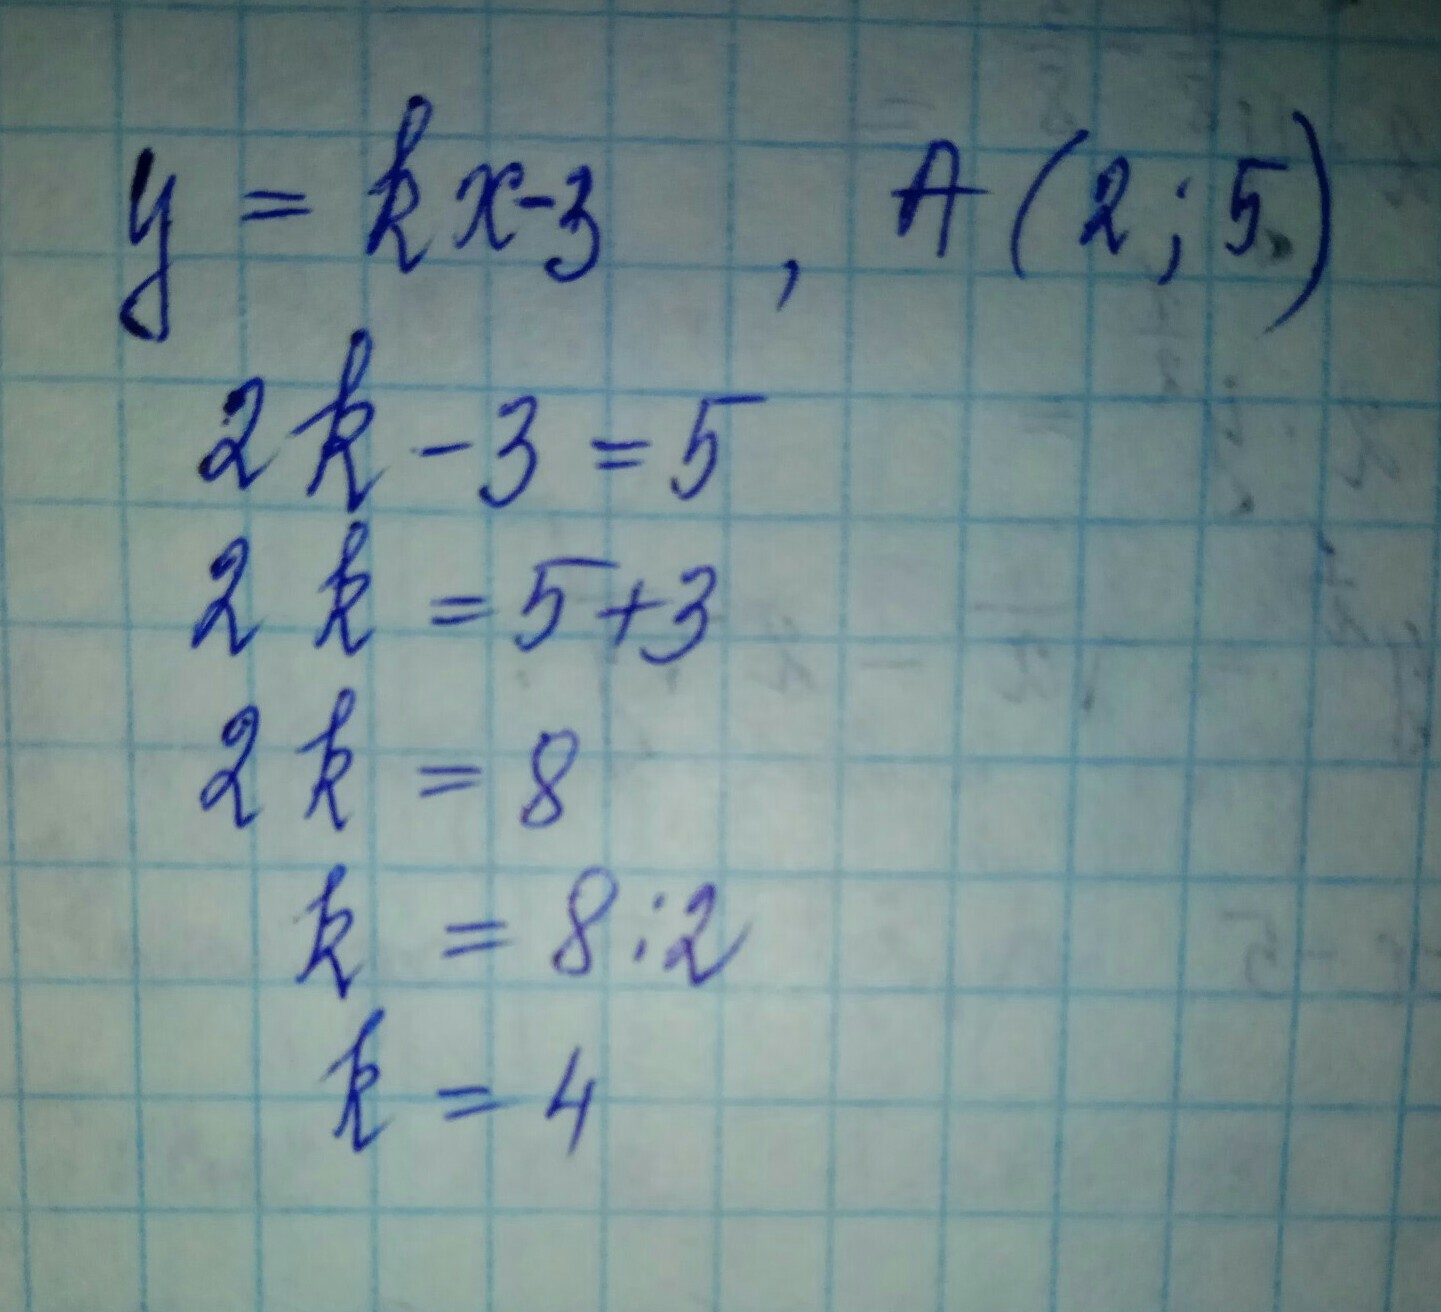 y = kx-3 , A(2;5)
2k-3=5
2k=5+3
2k=8
k=8:2
k=4